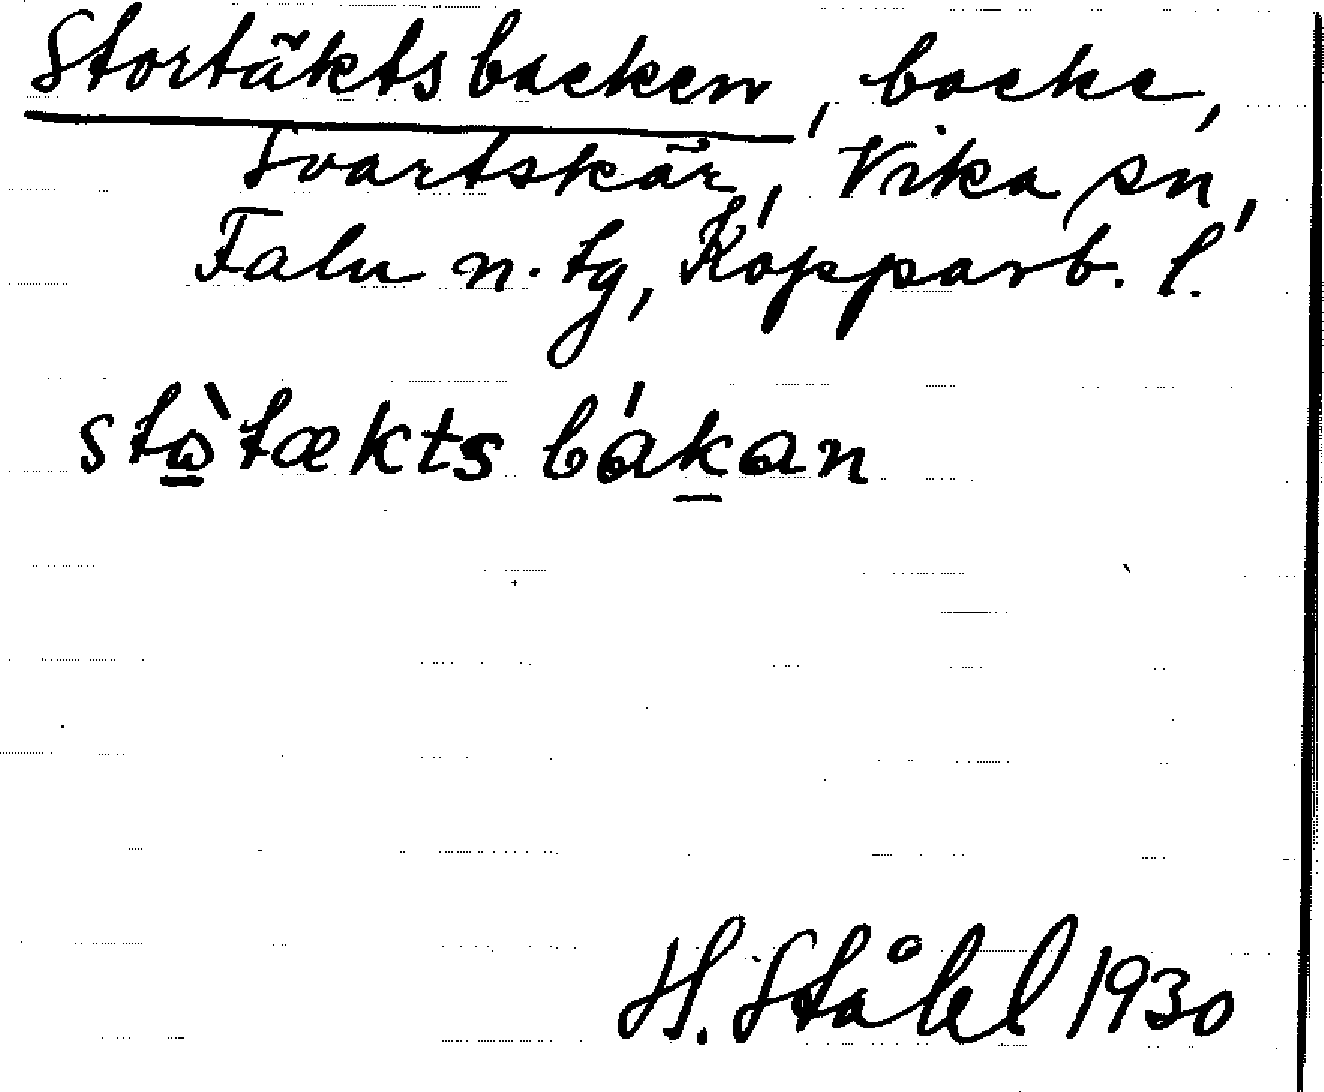 Stortäktsbacken, backe,
Svartskär, Vika sn,
Falu n. tg, Kopparb. l.
stɷ̀tækts bákan
H. Ståhl 1930